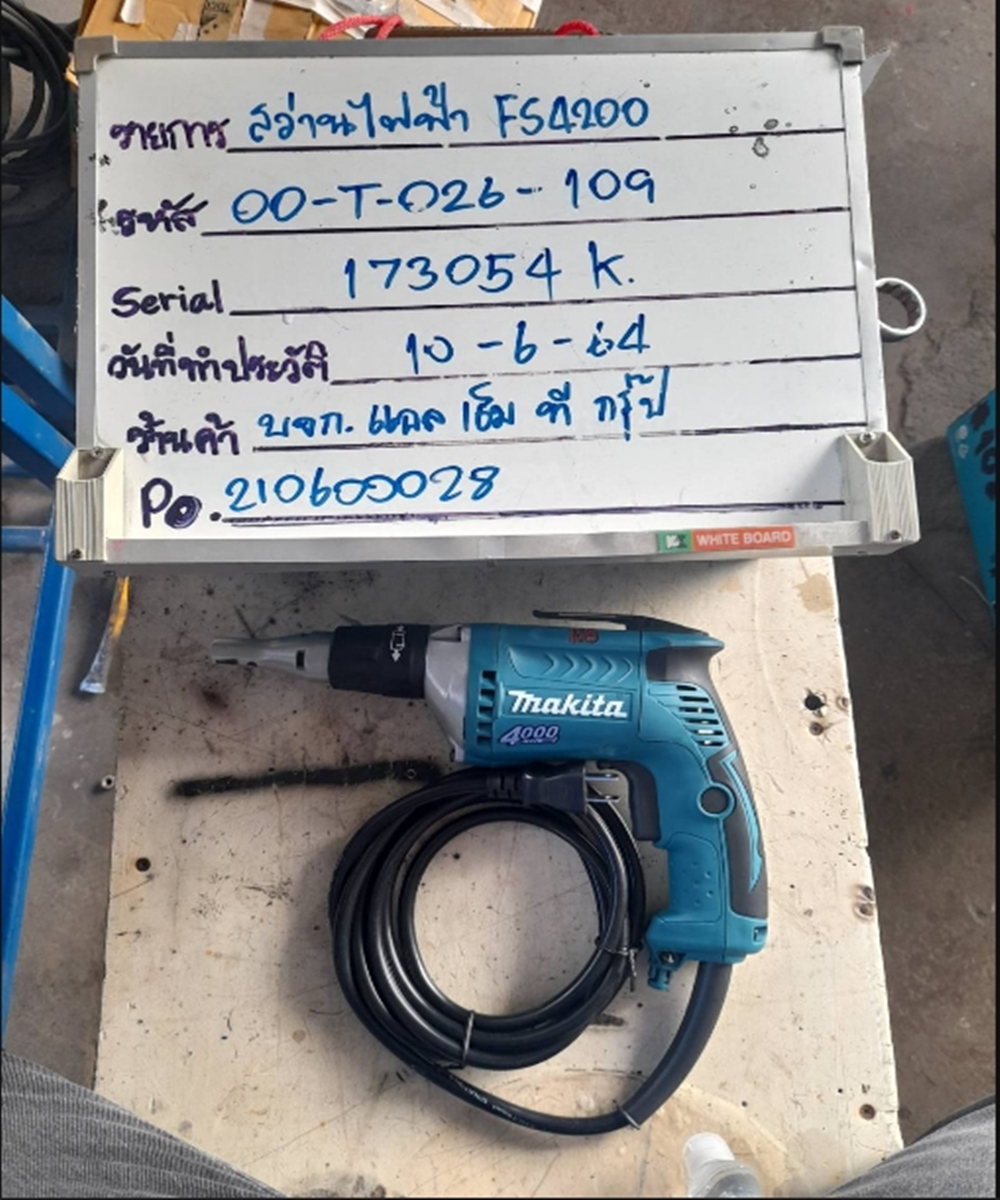 รายการ สว่านไฟฟ้า FS4200
รหัส 00-T-026-109
Serial 173054 K.
วันที่ทำประวัติ 10-6-64
ร้านค้า บจก. แอล เอ็ม ที กรุ๊ป
PO. 210600028
WHITE BOARD
makita
4000